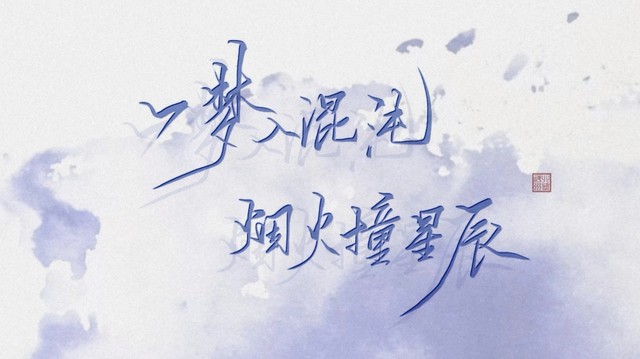 一梦入混沌
烟火撞星辰